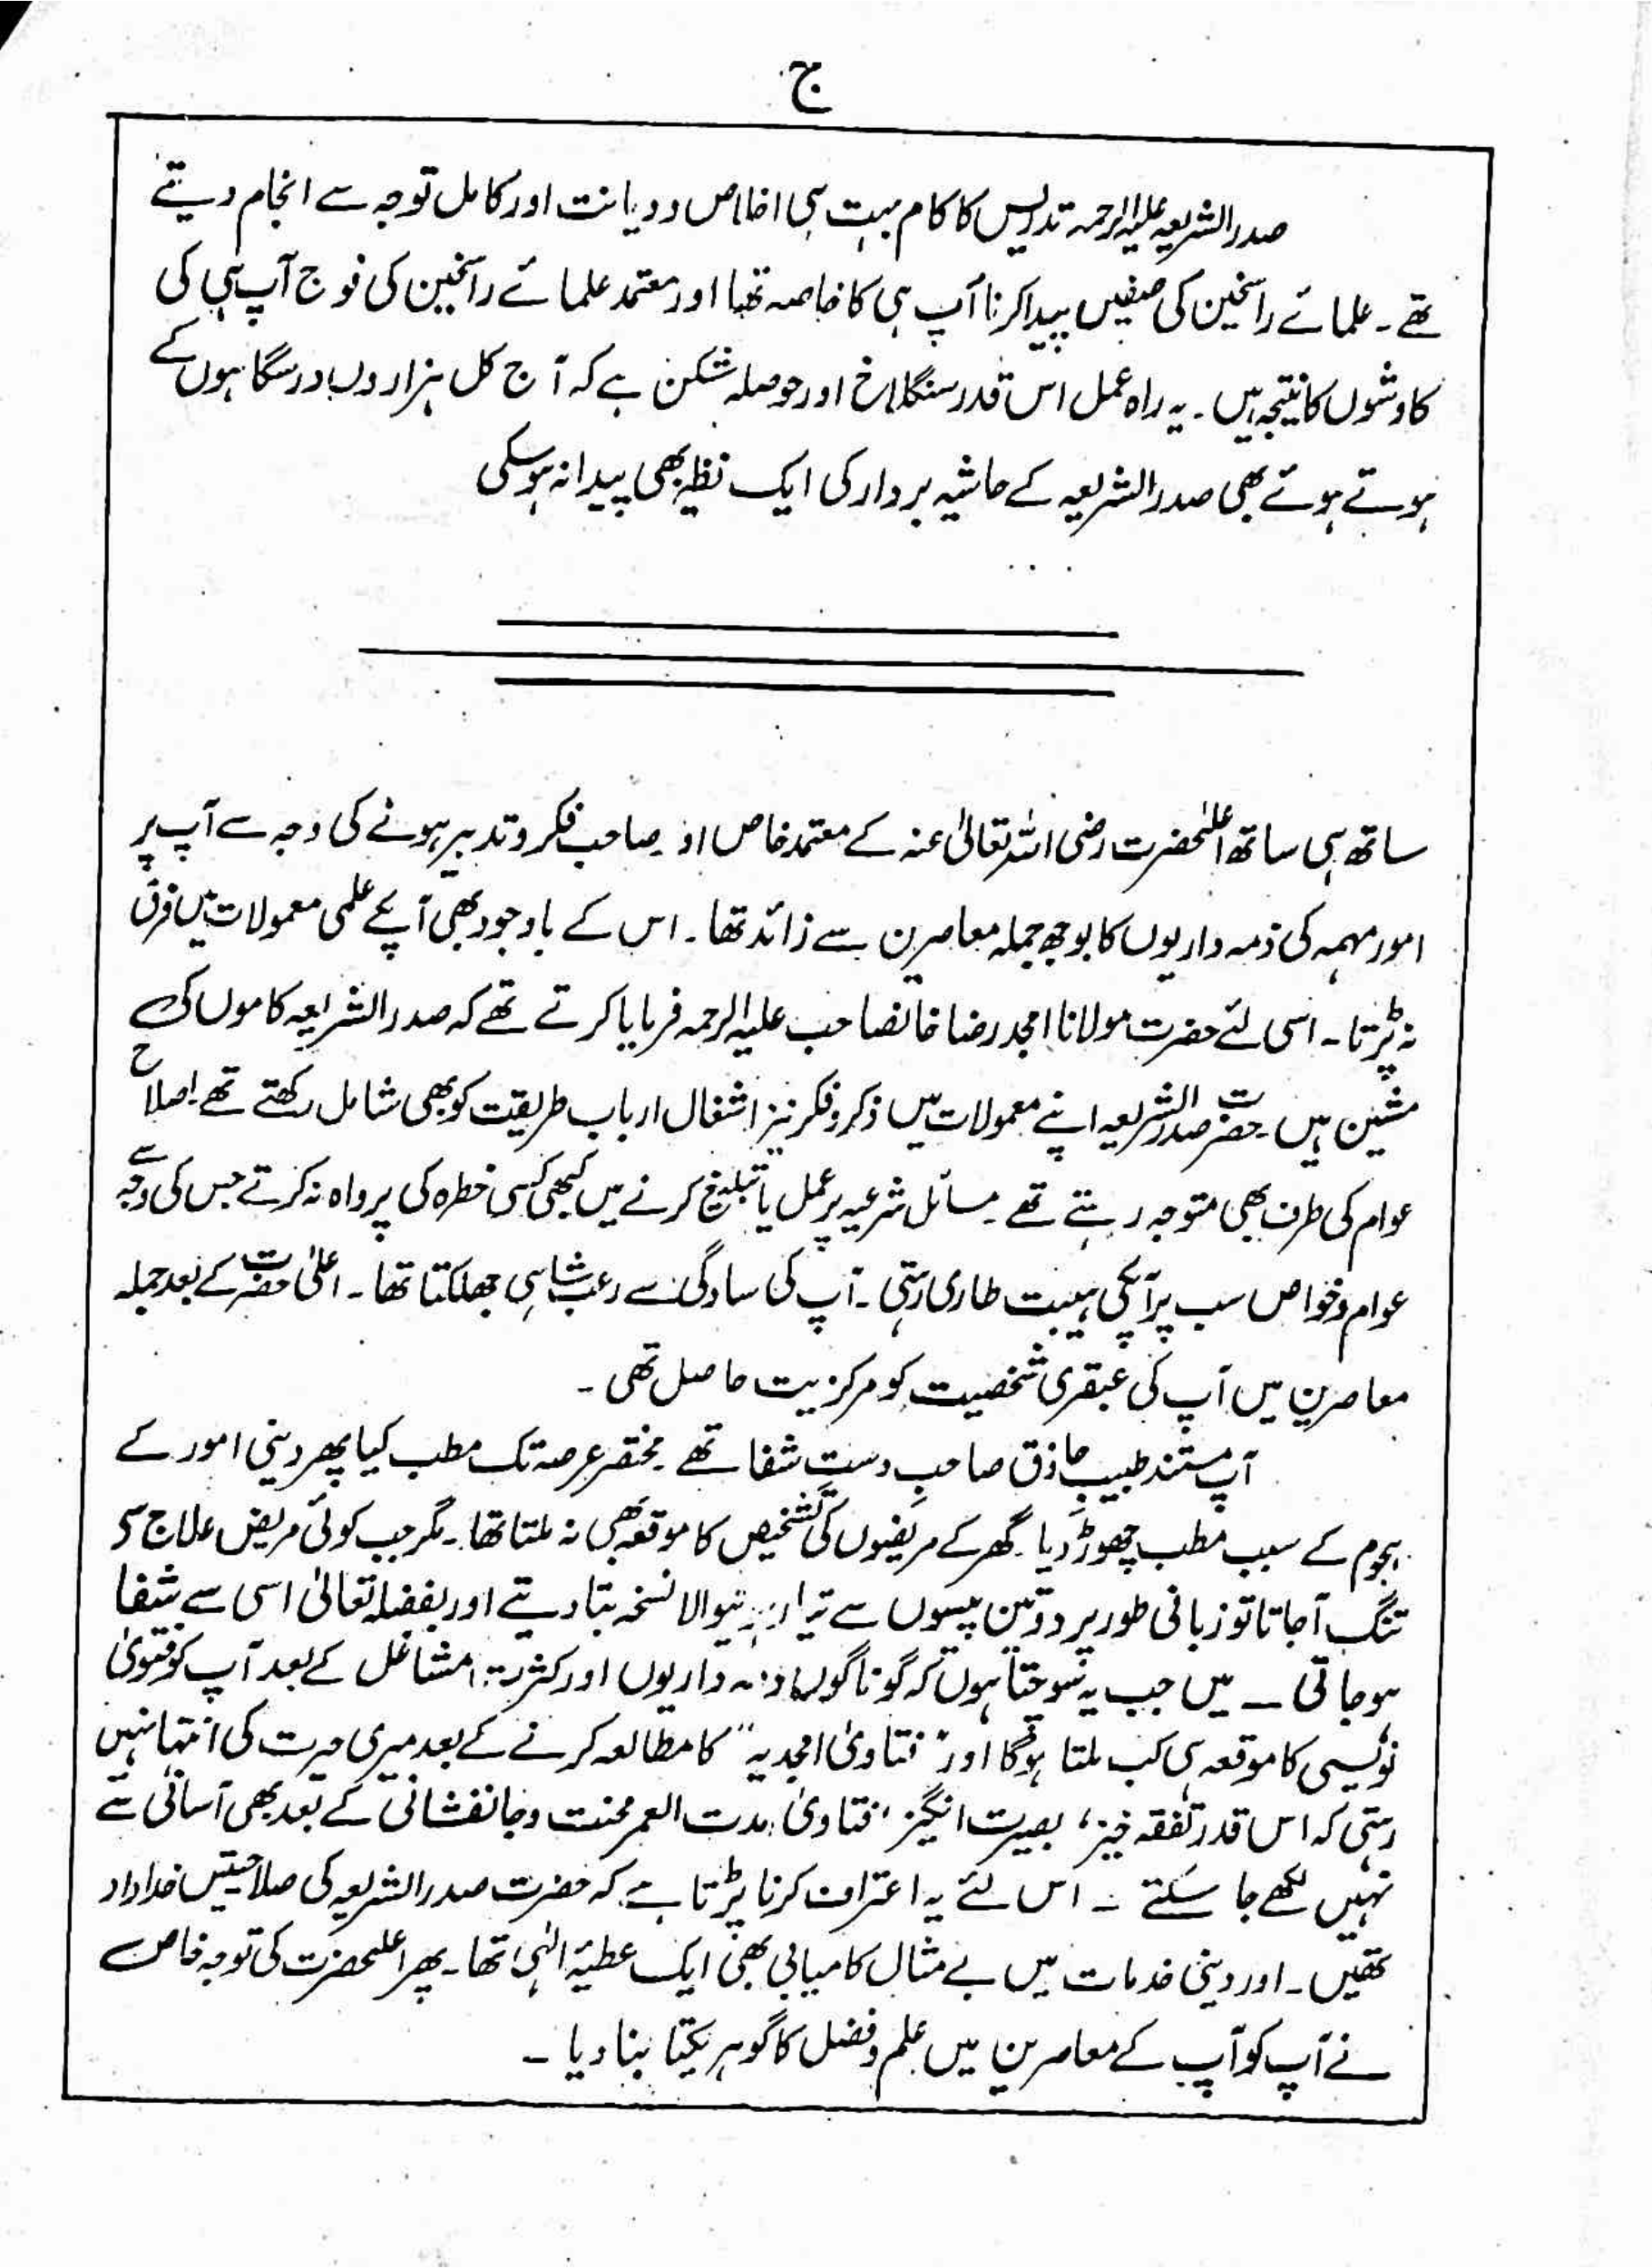 ج
صدر الشریعہ علیہ الرحمہ تدریس کا کام بہت ہی اخلاص و دیانت اور کامل توجہ سے انجام دیتے
تھے۔ علمائے راسخین کی صفیں پیدا کرنا آپ ہی کا خاصہ تھا اور معتمد علمائے راسخین کی فوج آپ ہی کی
کاوشوں کا نتیجہ ہیں۔ یہ راہ عمل اس قدر سنگلاخ اور حوصلہ شکن ہے کہ آج کل ہزاروں درسگاہوں کے
ہوتے ہوئے بھی صدر الشریعہ کے حاشیہ بردار کی ایک نظیر بھی پیدا نہ ہوسکی
ساتھ ہی ساتھ اعلیٰحضرت رضی اللہ تعالیٰ عنہ کے معتمد خاص اور صاحب فکر و تدبیر ہونے کی وجہ سے آپ پر
امور مہمہ کی ذمہ داریوں کا بوجھ جملہ معاصرین سے زائد تھا۔ اس کے باوجود بھی آپکے علمی معمولات میں فرق
نہ پڑتا۔ اسی لئے حضرت مولانا امجد رضا خانصاحب علیہ الرحمہ فرمایا کرتے تھے کہ صدر الشریعہ کاموں کی
مشین ہیں۔ حضرت صدر الشریعہ اپنے معمولات میں ذکر و فکر نیز اشغال ارباب طریقت کو بھی شامل رکھتے تھے۔ اصلاح
عوام کی طرف بھی متوجہ رہتے تھے۔ مسائل شرعیہ پر عمل یا تبلیغ کرنے میں کبھی کسی خطرہ کی پرواہ نہ کرتے جس کی وجہ سے
عوام و خواص سب پر آپکی ہیبت طاری رہتی۔ آپ کی سادگی سے رعب شاہی جھلکتا تھا۔ اعلیٰ حضرت کے بعد جملہ
معاصرین میں آپ کی عبقری شخصیت کو مرکزیت حاصل تھی۔
آپ مستند طبیبِ حاذق صاحبِ دست شفا تھے۔ مختصر عرصہ تک مطب کیا پھر دینی امور کے
ہجوم کے سبب مطب چھوڑ دیا۔ گھر کے مریضوں کی تشخیص کا موقعہ بھی نہ ملتا تھا۔ مگر جب کوئی مریض علاج سے
تنگ آجاتا تو زبانی طور پر دو تین پیسوں سے تیار ہونیوالا نسخہ بتا دیتے اور بفضلہ تعالیٰ اسی سے شفا
ہوجاتی ـ میں جب یہ سوچتا ہوں کہ گوناگوں ذمہ داریوں اور کثرت مشاغل کے بعد آپ کو فتویٰ
نویسی کا موقعہ ہی کب ملتا ہوگا اور "فتاویٰ امجدیہ" کا مطالعہ کرنے کے بعد میری حیرت کی انتہا نہیں
رہتی کہ اس قدر تفقہ خیز، بصیرت انگیز، فتاویٰ مدت العمر محنت و جانفشانی کے بعد بھی آسانی سے
نہیں لکھے جا سکتے ۔ اس لئے یہ اعتراف کرنا پڑتا ہے کہ حضرت صدر الشریعہ کی صلاحیتیں خداداد
تھیں۔ اور دینی خدمات میں بے مثال کامیابی بھی ایک عطیۂ الٰہی تھا۔ پھر اعلیحضرت کی توجہ خاص
نے آپ کو آپ کے معاصرین میں علم و فضل کا گوہر یکتا بنا دیا۔